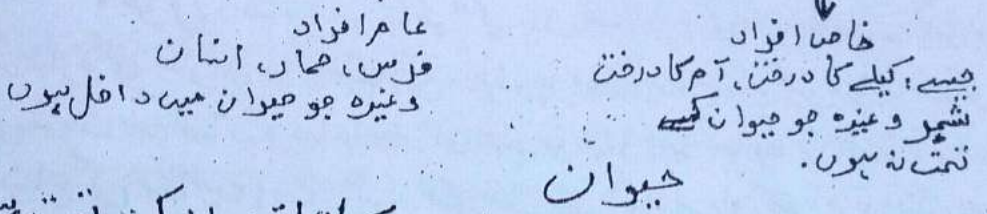 خاص افراد
جیسے، کیلے کا درخت، آم کا درخت
شجر وغیرہ جو حیوان کے
تحت نہ ہوں.
عام افراد
فرس، حمار، انسان
وغیرہ جو حیوان میں داخل ہوں
حیوان